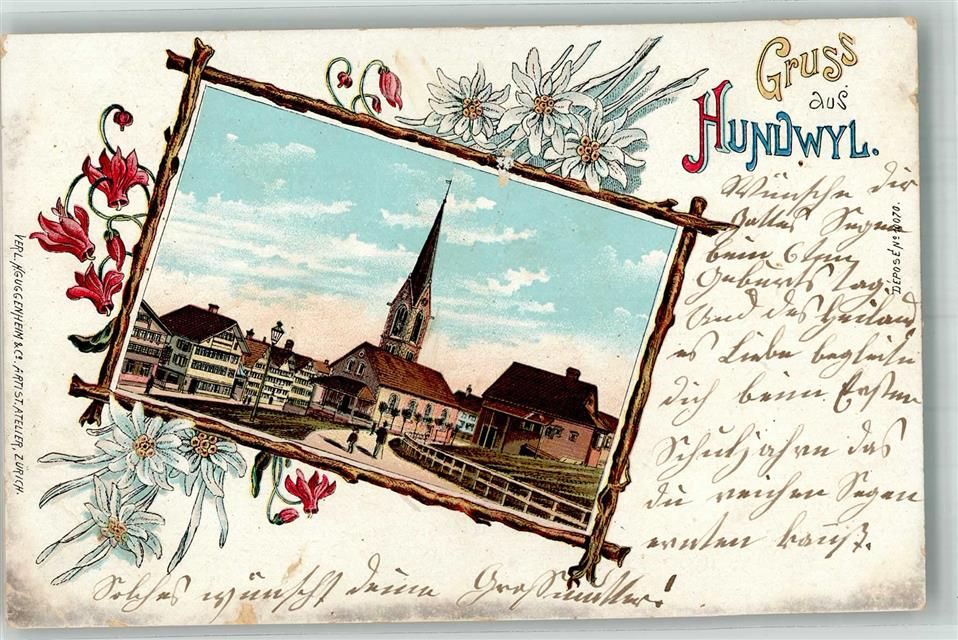 Gruss
aus
HUNDWYL.
Wünsche dir
Gottes Segen
beim 6ten
Geburtstag.
Und des Heiland
es Liebe begleite
dich beim Ersten
Schuljahre das
du reichen Segen
ernten kanst.
Solches wünscht deine Grossmutter!
DEPOSÉ No
VERL. H. GUGGENHEIM & Co. ARTIST. ATELIER, ZÜRICH.